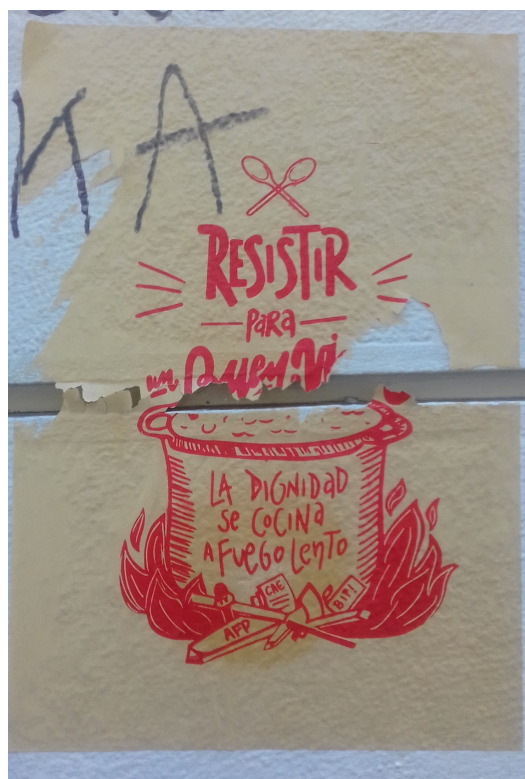 RESISTIR
PARA
un
LA DIGNIDAD
se COCINA
A FUEGO Lento
CAE
AFP
BIP!